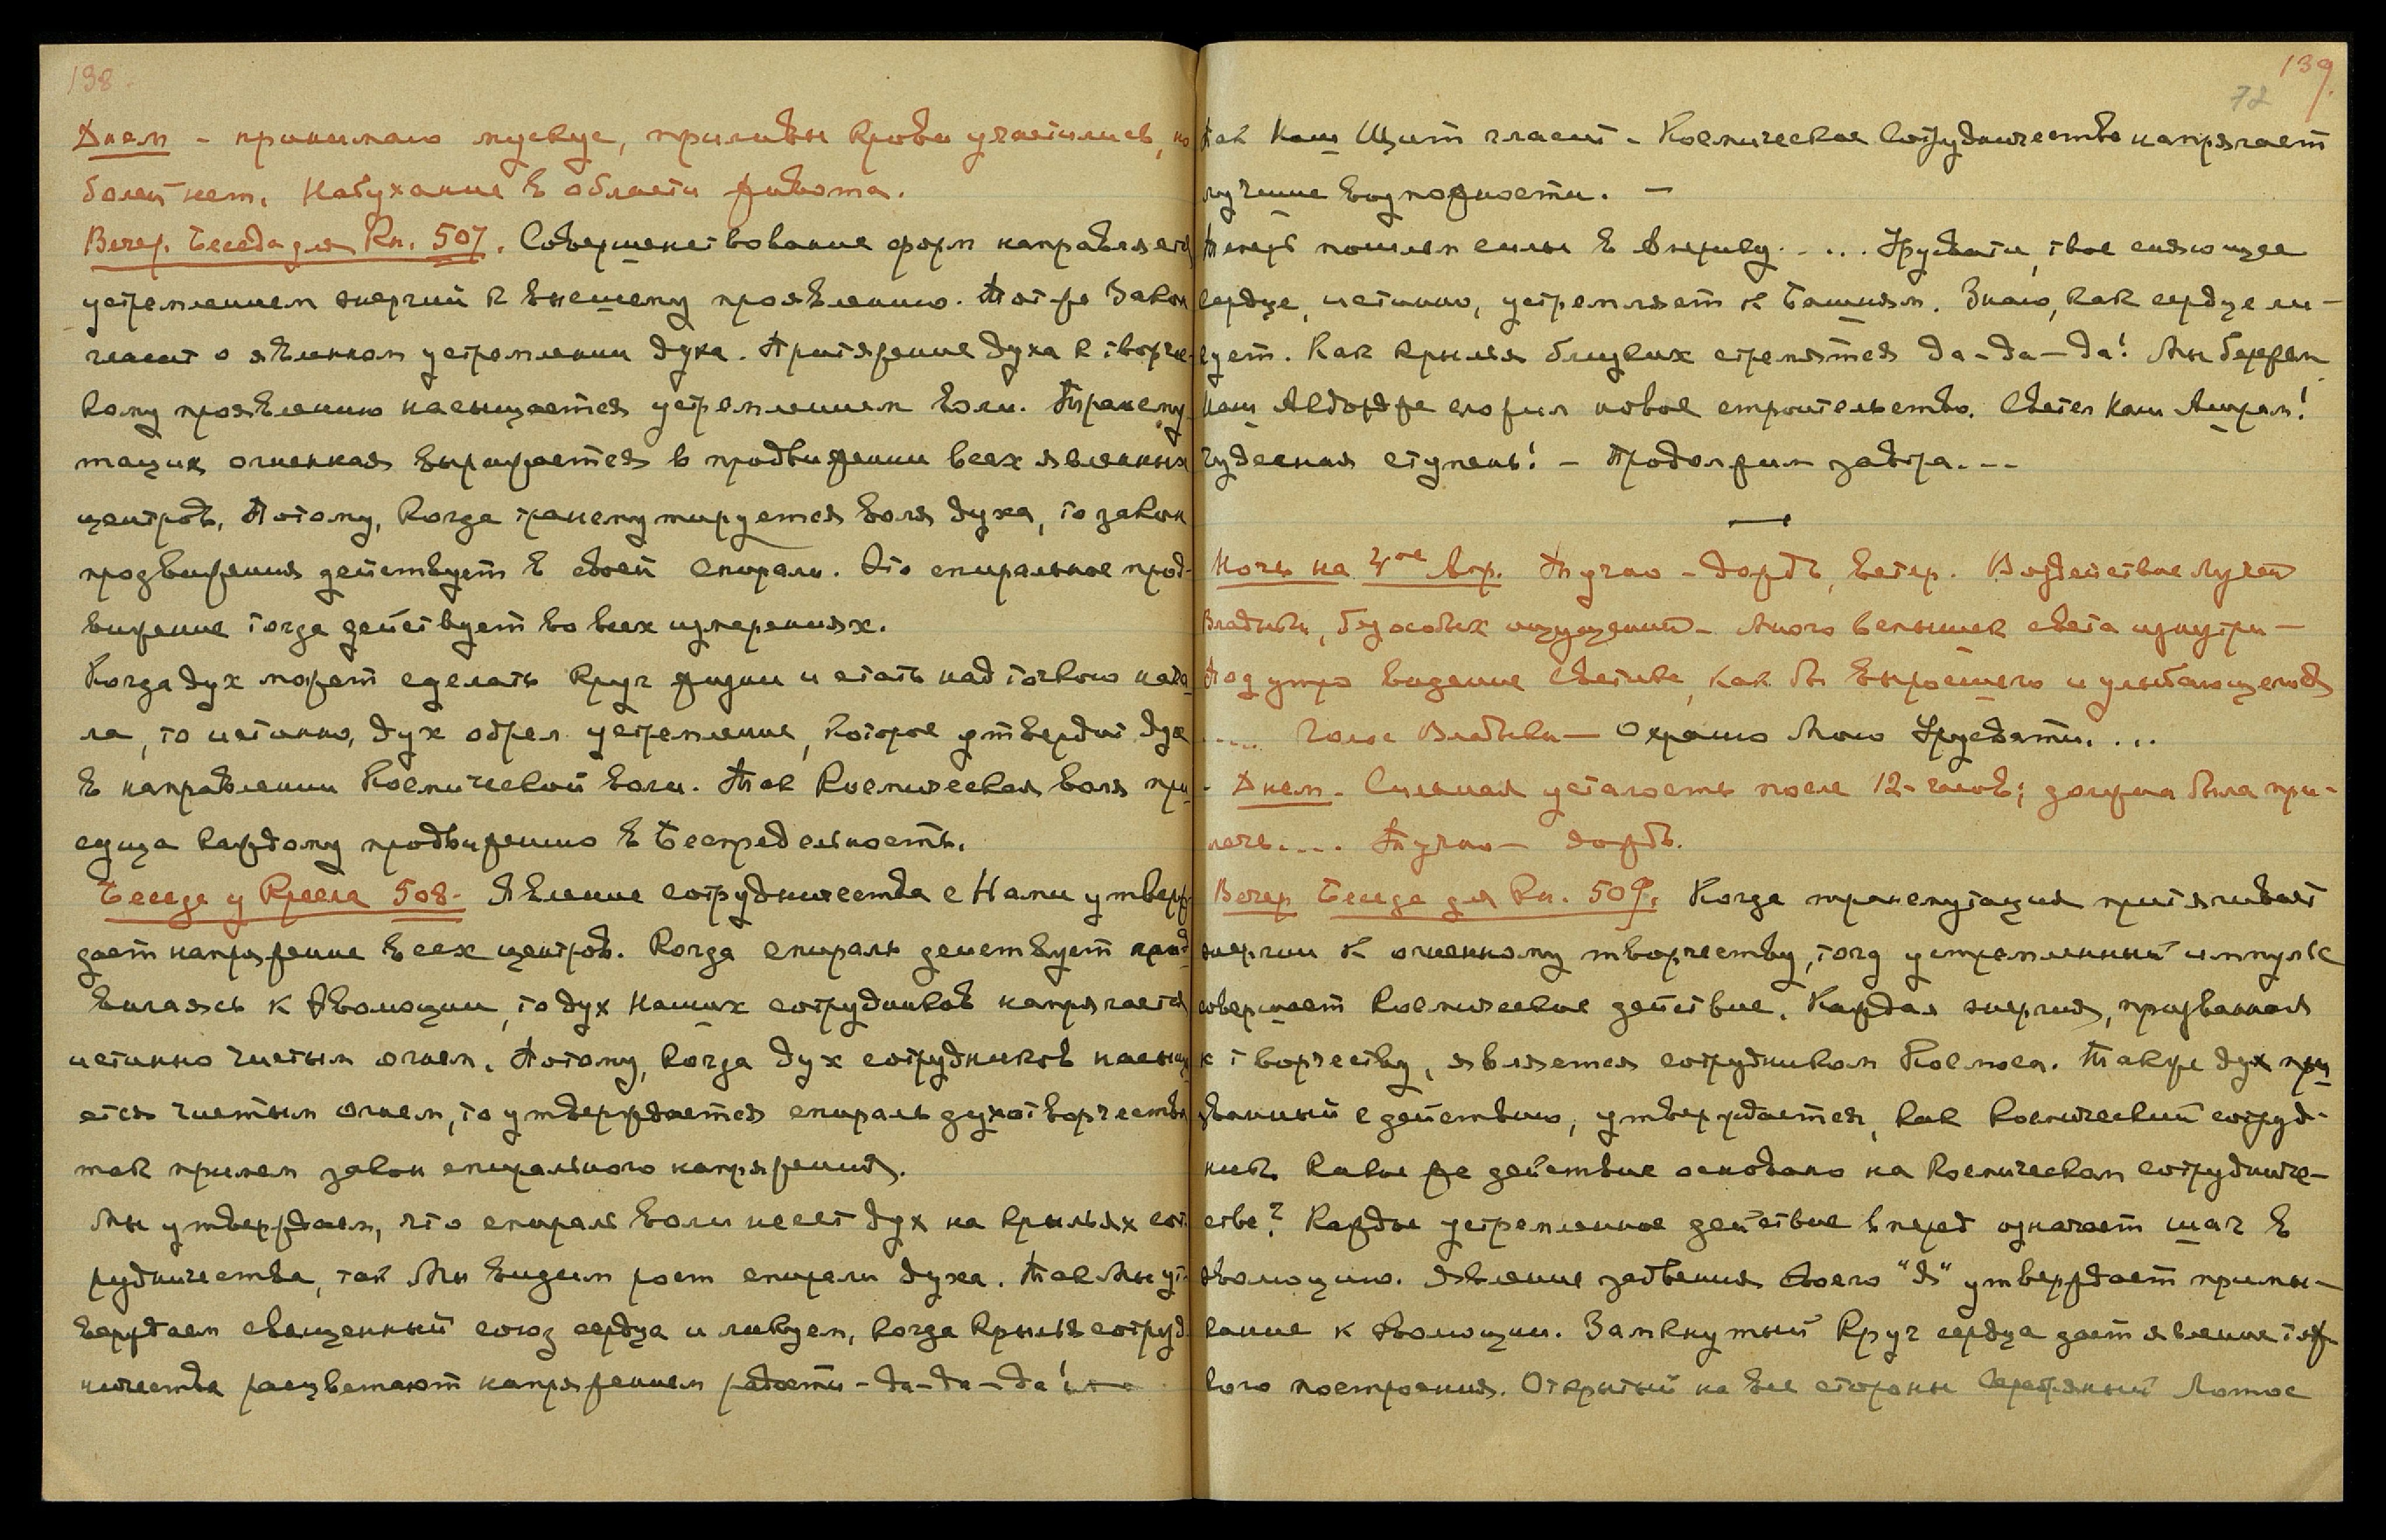 138.
Днем - принимаю мускус, приливы крови участились, но
болей нет. Набухание в области живота.
Вечер. Беседа для Кн. 507. Совершенствование форм направляется
устремлением энергий к высшему проявлению. Тот же Закон
гласит о явленном устремлении духа. Притяжение духа к творчес-
кому проявлению насыщается устремлением воли. Трансму-
тация огненная выражается в продвижении всех явленных
центров. Потому, когда трансмутируется воля духа, то закон
продвижения действует в своей спирали. Это спиральное прод-
вижение тогда действует во всех измерениях.
Когда дух может сделать круг жизни и стать над точкою нача-
ла, то истинно, дух обрел устремление, которое утвердит дух
в направлении Космической воли. Так Космическая воля при-
суща каждому продвижению в Беспредельность.
Беседа у Кресла 508. Явление сотрудничества с Нами утверж-
дает напряжение всех центров. Когда спираль действует прод-
вигаясь к эволюции, то дух Наших сотрудников напрягается
истинно чистым огнем. Потому, когда дух сотрудников насыща-
ется чистым огнем, то утверждается спираль духотворчества
так примем закон спирального напряжения.
Мы утверждаем, что спираль воли несет дух на крыльях сот-
рудничества, так Мы видим рост спирали духа. Так Мы ут-
верждаем священный союз сердца и ликуем, когда крылья сотруд-
ничества расцветают напряжением радости - да-да-да!
139.
72
Так Наш Щит гласит - Космическое Сотрудничество напрягает
лучшие возможности. -
Теперь пошлем силы в Америку. ... Урусвати, твое сияющее
сердце, истинно, устремляет к Башням. Знаю, как сердце ли-
кует. Как крылья близких стремятся да-да-да! Мы бережем
Наш Адбордже сложил новое строительство. Светел Наш Ашрам!
Чудесная ступень! - Продолжим завтра. ...
Ночь на 4ое Апр. Тучно - дождь, ветер. Воздействие Лучей
Владыки, без особых ощущений - много вспышек света изнутри -
Под утро видение Светика, как бы выросшего и улыбающегося
.... Голос Владыки - Охраню Мою Урусвати. ...
- Днем. Сильная усталость после 12-часов; должна была при-
лечь.... Тучно - дождь.
Вечер Беседа для Кн. 509. Когда трансмутация притягивает
энергии к огненному творчеству, тогд устремленный импульс
совершает космическое действие. Каждая энергия, призванная
к творчеству, является сотрудником Космоса. Также дух при-
званный к действию, утверждается, как космический сотруд-
ник. Какое же действие основано на космическом сотрудниче-
стве? Каждое устремленное действие вперед означает шаг в
эволюцию. Явление забвения своего "я" утверждает примы-
кание к эволюции. Замкнутый круг сердца дает явление тяж-
кого построения. Открытый на все стороны Серебряный Лотос